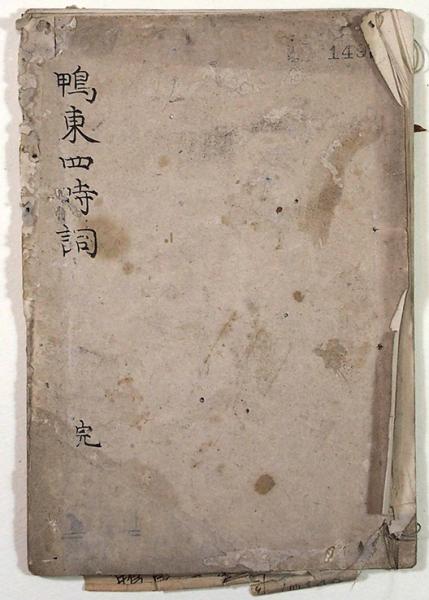 鴨東四時詞
完